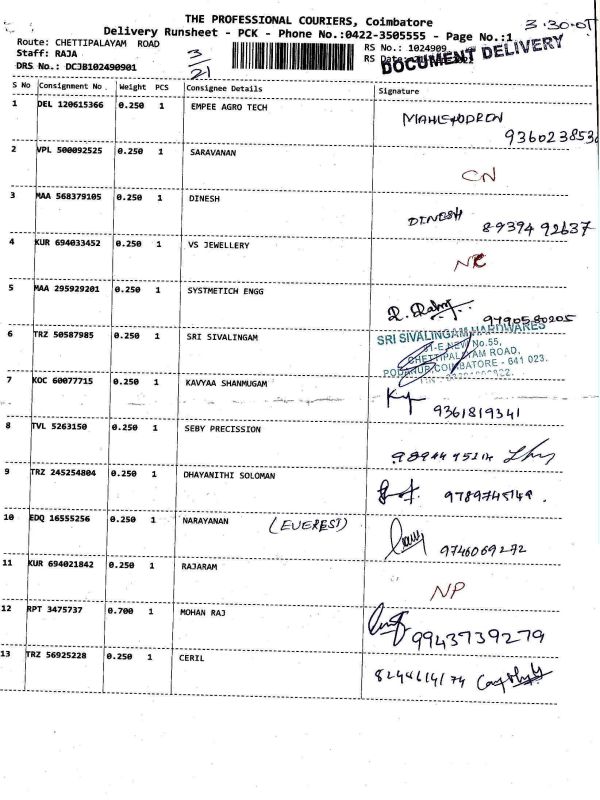 THE PROFESSIONAL COURIERS, Coimbatore
3-30-01
Delivery Runsheet - PCK - Phone No.:0422-3505555 - Page No.:1
Route: CHETTIPALAYAM ROAD
3/21
RS No.: 1024909
DOCUMENT DELIVERY
Staff: RAJA
RS Date:
DRS No.: DCJB102490901
S No Consignment No. Weight PCS Consignee Details Signature
1 DEL 120615366 0.250 1 EMPEE AGRO TECH
936023853
2 VPL 500092525 0.250 1 SARAVANAN CN
3 MAA 568379105 0.250 1 DINESH DINESH 89394 92637
4 KUR 694033452 0.250 1 VS JEWELLERY
5 MAA 295929201 0.250 1 SYSTMETICH ENGG 9790580205
6 TRZ 50587985 0.250 1 SRI SIVALINGAM
SRI SIVALINGAM HARDWARES
No.55,
CHETTIPALAYAM ROAD,
PODANUR, COIMBATORE - 641 023.
7 KOC 60077715 0.250 1 KAVYAA SHANMUGAM 9361819341
8 TVL 5263150 0.250 1 SEBY PRECISSION
9 TRZ 245254804 0.250 1 DHAYANITHI SOLOMAN
10 EDQ 16555256 0.250 1 NARAYANAN (EVEREST) 9746069272
11 KUR 694021842 0.250 1 RAJARAM NP
12 RPT 3475737 0.700 1 MOHAN RAJ 9943739279
13 TRZ 56925228 0.250 1 CERIL